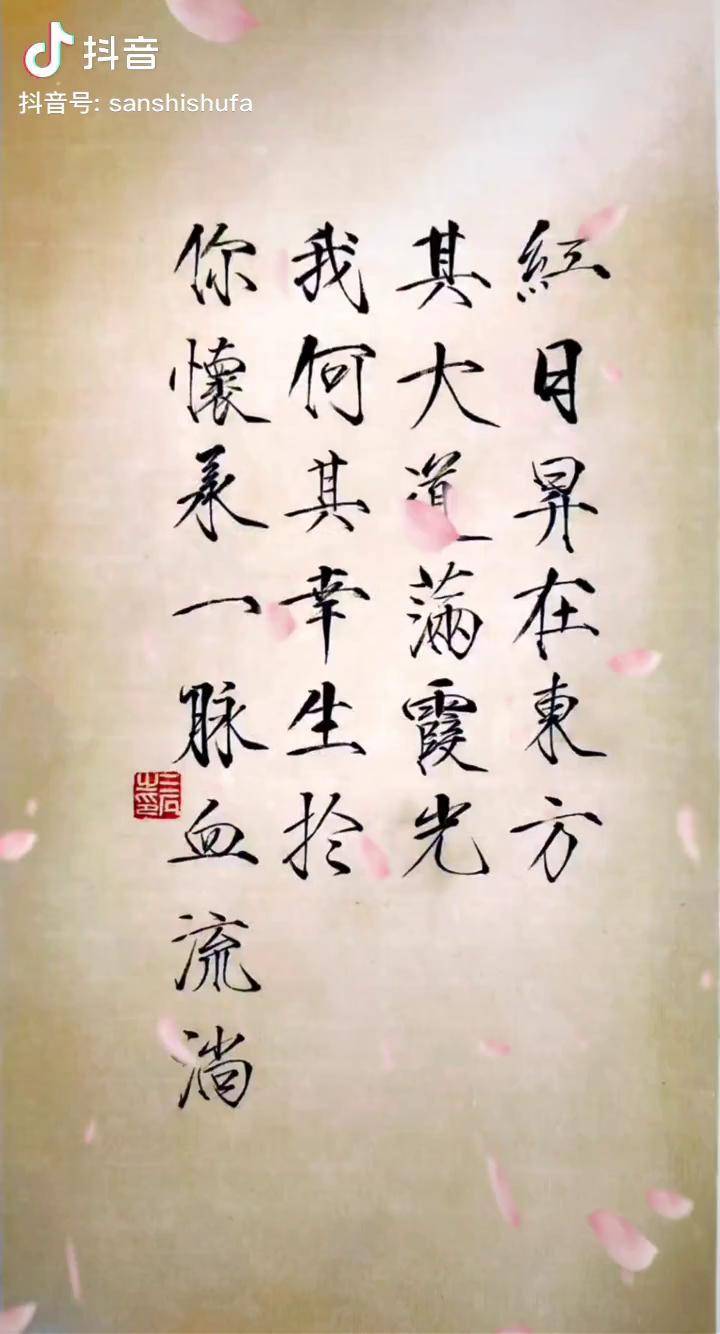 抖音
抖音号: sanshishufa
紅日昇在東方
其大道滿霞光
我何其幸生於
你懷承一脉血流淌
三石之印